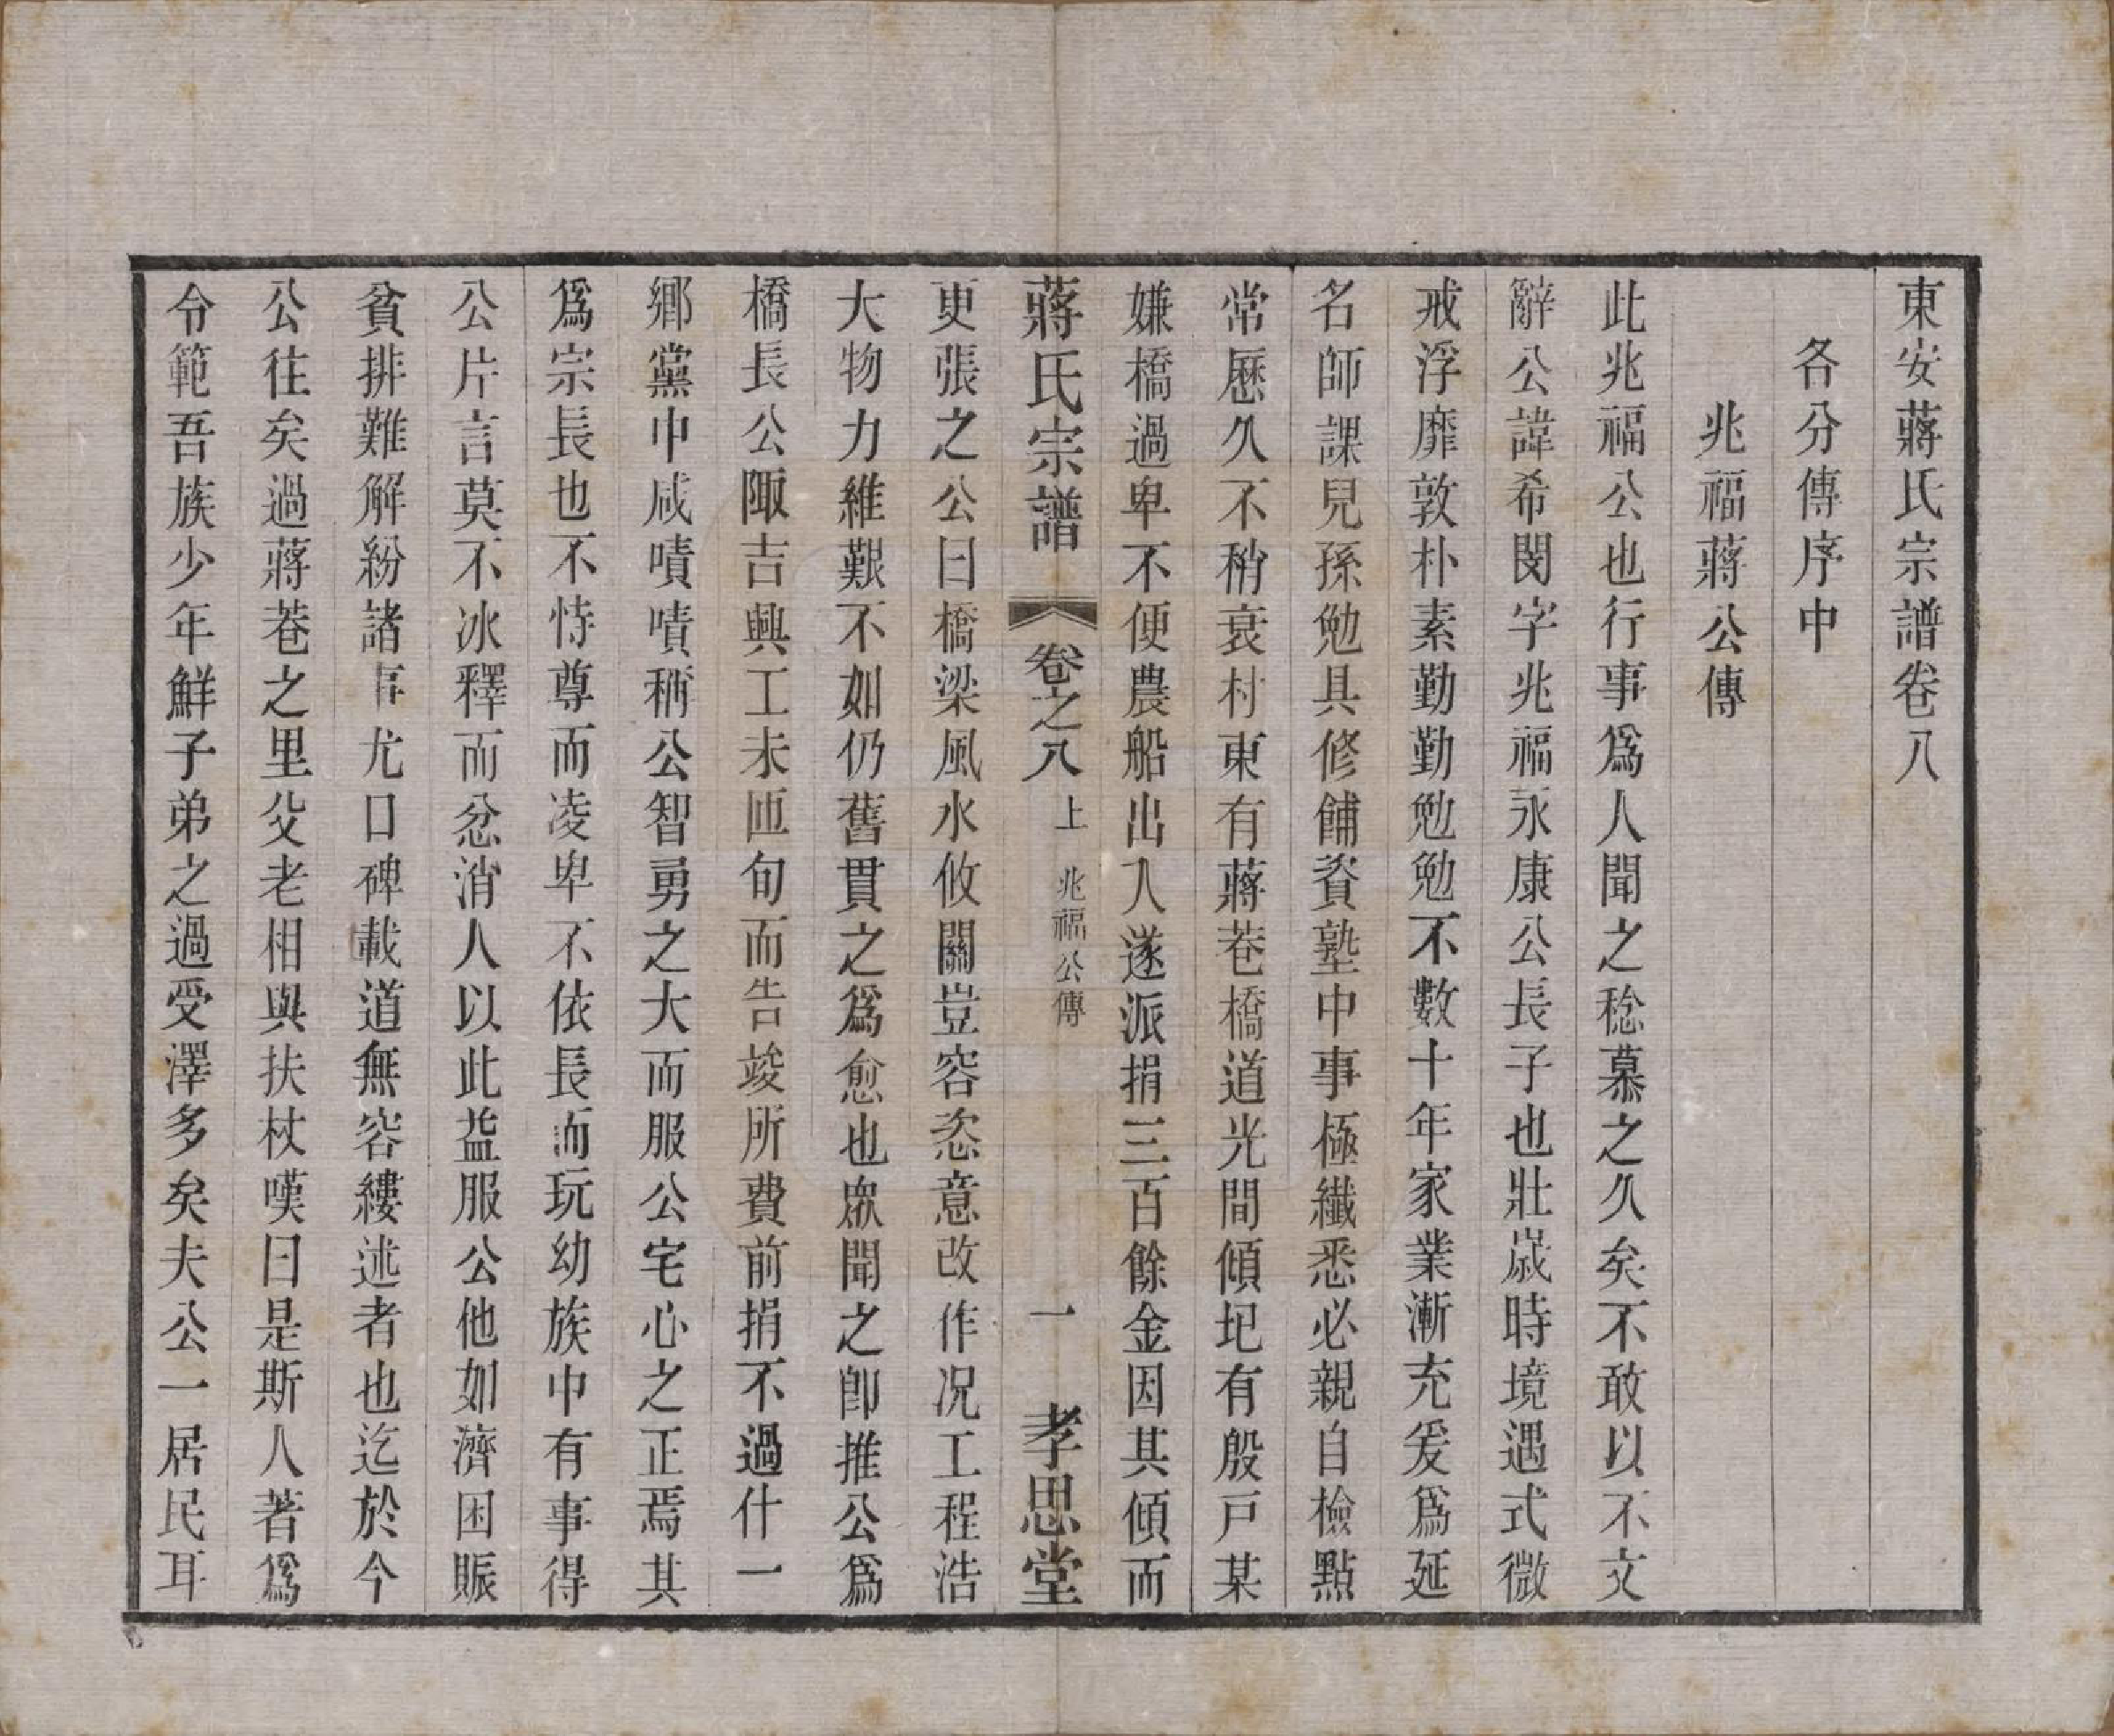 東安蔣氏宗譜卷八
各分傳序中
兆福蔣公傳
此兆福公也行事爲人聞之稔慕之久矣不敢以不文
辭公諱希閔字兆福永康公長子也壯歲時境遇式微
戒浮靡敦朴素勤勤勉勉不數十年家業漸充爰爲延
名師課兒孫勉具修餔資塾中事極纖悉必親自檢點
常歷久不稍衰村東有蔣巷橋道光間傾圯有殷戸某
嫌橋過卑不便農船出入遂派捐三百餘金因其傾而
蔣氏宗譜 卷之八 上 兆福公傳 一 孝思堂
更張之公曰橋梁風水攸關豈容恣意改作况工程浩
大物力維艱不如仍舊貫之爲愈也衆聞之卽推公爲
橋長公陬吉興工未匝旬而告竣所費前捐不過什一
鄉黨中咸嘖嘖稱公智勇之大而服公宅心之正焉其
爲宗長也不恃尊而凌卑不依長而玩幼族中有事得
公片言莫不冰釋而忿消人以此益服公他如濟困賑
貧排難解紛諸事尤口碑載道無容縷述者也迄於今
公往矣過蔣巷之里父老相與扶杖嘆曰是斯人著爲
令範吾族少年鮮子弟之過受澤多矣夫公一居民耳